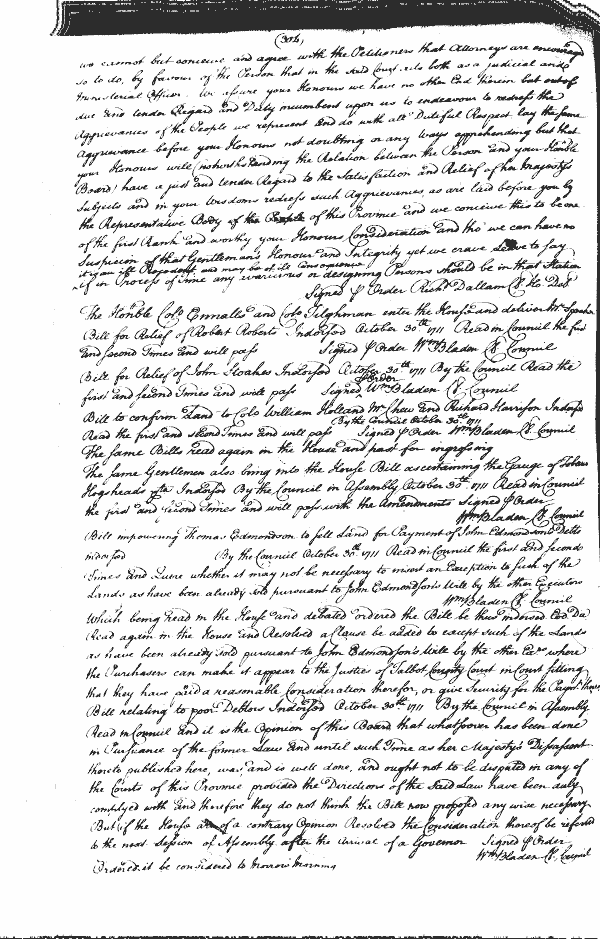 (306)
we cannot but conceive and agree with the Petitioners that Attorneys are encouraged
so to do, by favour of the Person that in the said Court acts both as a judicial and
ministerial Officer. We assure your Honours we have no other End therein but out of
due and tender Regard and Duty incumbent upon us to endeavour to redress the
Aggrievances of the People we represent and do with all Dutiful Respect lay the same
Aggrievance before your Honours not doubting or any Ways apprehending but that
your Honours will (notwithstanding the Relation between the Person and your Honble
Board) have a just and tender Regard to the Satisfaction and Relief of her Majestys
Subjects and in your Wisdoms redress such Aggrievances as are laid before you by
the Representative Body of the People of this Province and we conceive this to be one
of the first Rank and worthy your Honours Consideration and tho' we can have no
Suspicion of that Gentleman's Honour and Integrity yet we crave Leave to say
it is an ill Precedent and may be of ill Consequence
if in Process of Time any avaricious or designing Persons should be in that Station
Signed ⅌ Order Richd Dallam Cl. Ho. Del.
The Honble Colo Ennalls and Colo Tilghman enter the House and deliver Mr Speaker
Bill for Relief of Robert Roberts Indorsed October 30th 1711 Read in Council the first
and second Times and will pass Signed ⅌ Order Wm Bladen Cl. Council
Bill for Relief of John Stoakes Indorsed October 30th 1711 By the Council Read the
first and second Times and will pass Signed ⅌ Order Wm Bladen Cl. Council
Bill to confirm Land to Colo William Holland Mr Chew and Richard Harrison Indorsed
By the Council October 30th 1711
Read the first and second Times and will pass Signed ⅌ Order Wm Bladen Cl. Council
The same Bills read again in the House and past for ingrossing
The same Gentlemen also bring into the House Bill ascertaining the Gauge of Tobacco
Hogsheads &ca Indorsed By the Council in Assembly October 30th 1711 Read in Council
the first and second Times and will pass with the Amendments Signed ⅌ Order
Wm Bladen Cl. Council
Bill impowering Thomas Edmondson to sell Land for Payment of John Edmondsons Debts
indorsed By the Council October 30th 1711 Read in Council the first and second
Times and Quere whether it may not be necessary to insert an Exception to such of the
Lands as have been already sold pursuant to John Edmondson's Will by the other Executors
Wm Bladen Cl. Council
Which being read in the House and debated ordered the Bill be thus indorsed Eod. Die
Read again in the House and Resolved a Clause be added to except such of the Lands
as have been already sold pursuant to John Edmondson's Will by the other Exrs where
the Purchasers can make it appear to the Justices of Talbot County Court in Court sitting
that they have paid a reasonable Consideration therefor, or give Security for the Paymt thereof
Bill relating to poor Debtors Indorsed October 30th 1711 By the Council in Assembly
Read in Council and it is the Opinion of this Board that whatsoever has been done
in Pursuance of the former Law and until such Time as her Majesty's Dissassent
thereto published here, was, and is well done, and ought not to be disputed in any of
the Courts of this Province provided the Directions of the said Law have been duly
complyed with and therefore they do not think the Bill now proposed any wise necessary
But if the House are of a contrary Opinion Resolved the Consideration thereof be referred
to the next Session of Assembly after the Arrival of a Governor Signed ⅌ Order
Wm Bladen Cl. Council
Ordered it be considered to Morrow Morning